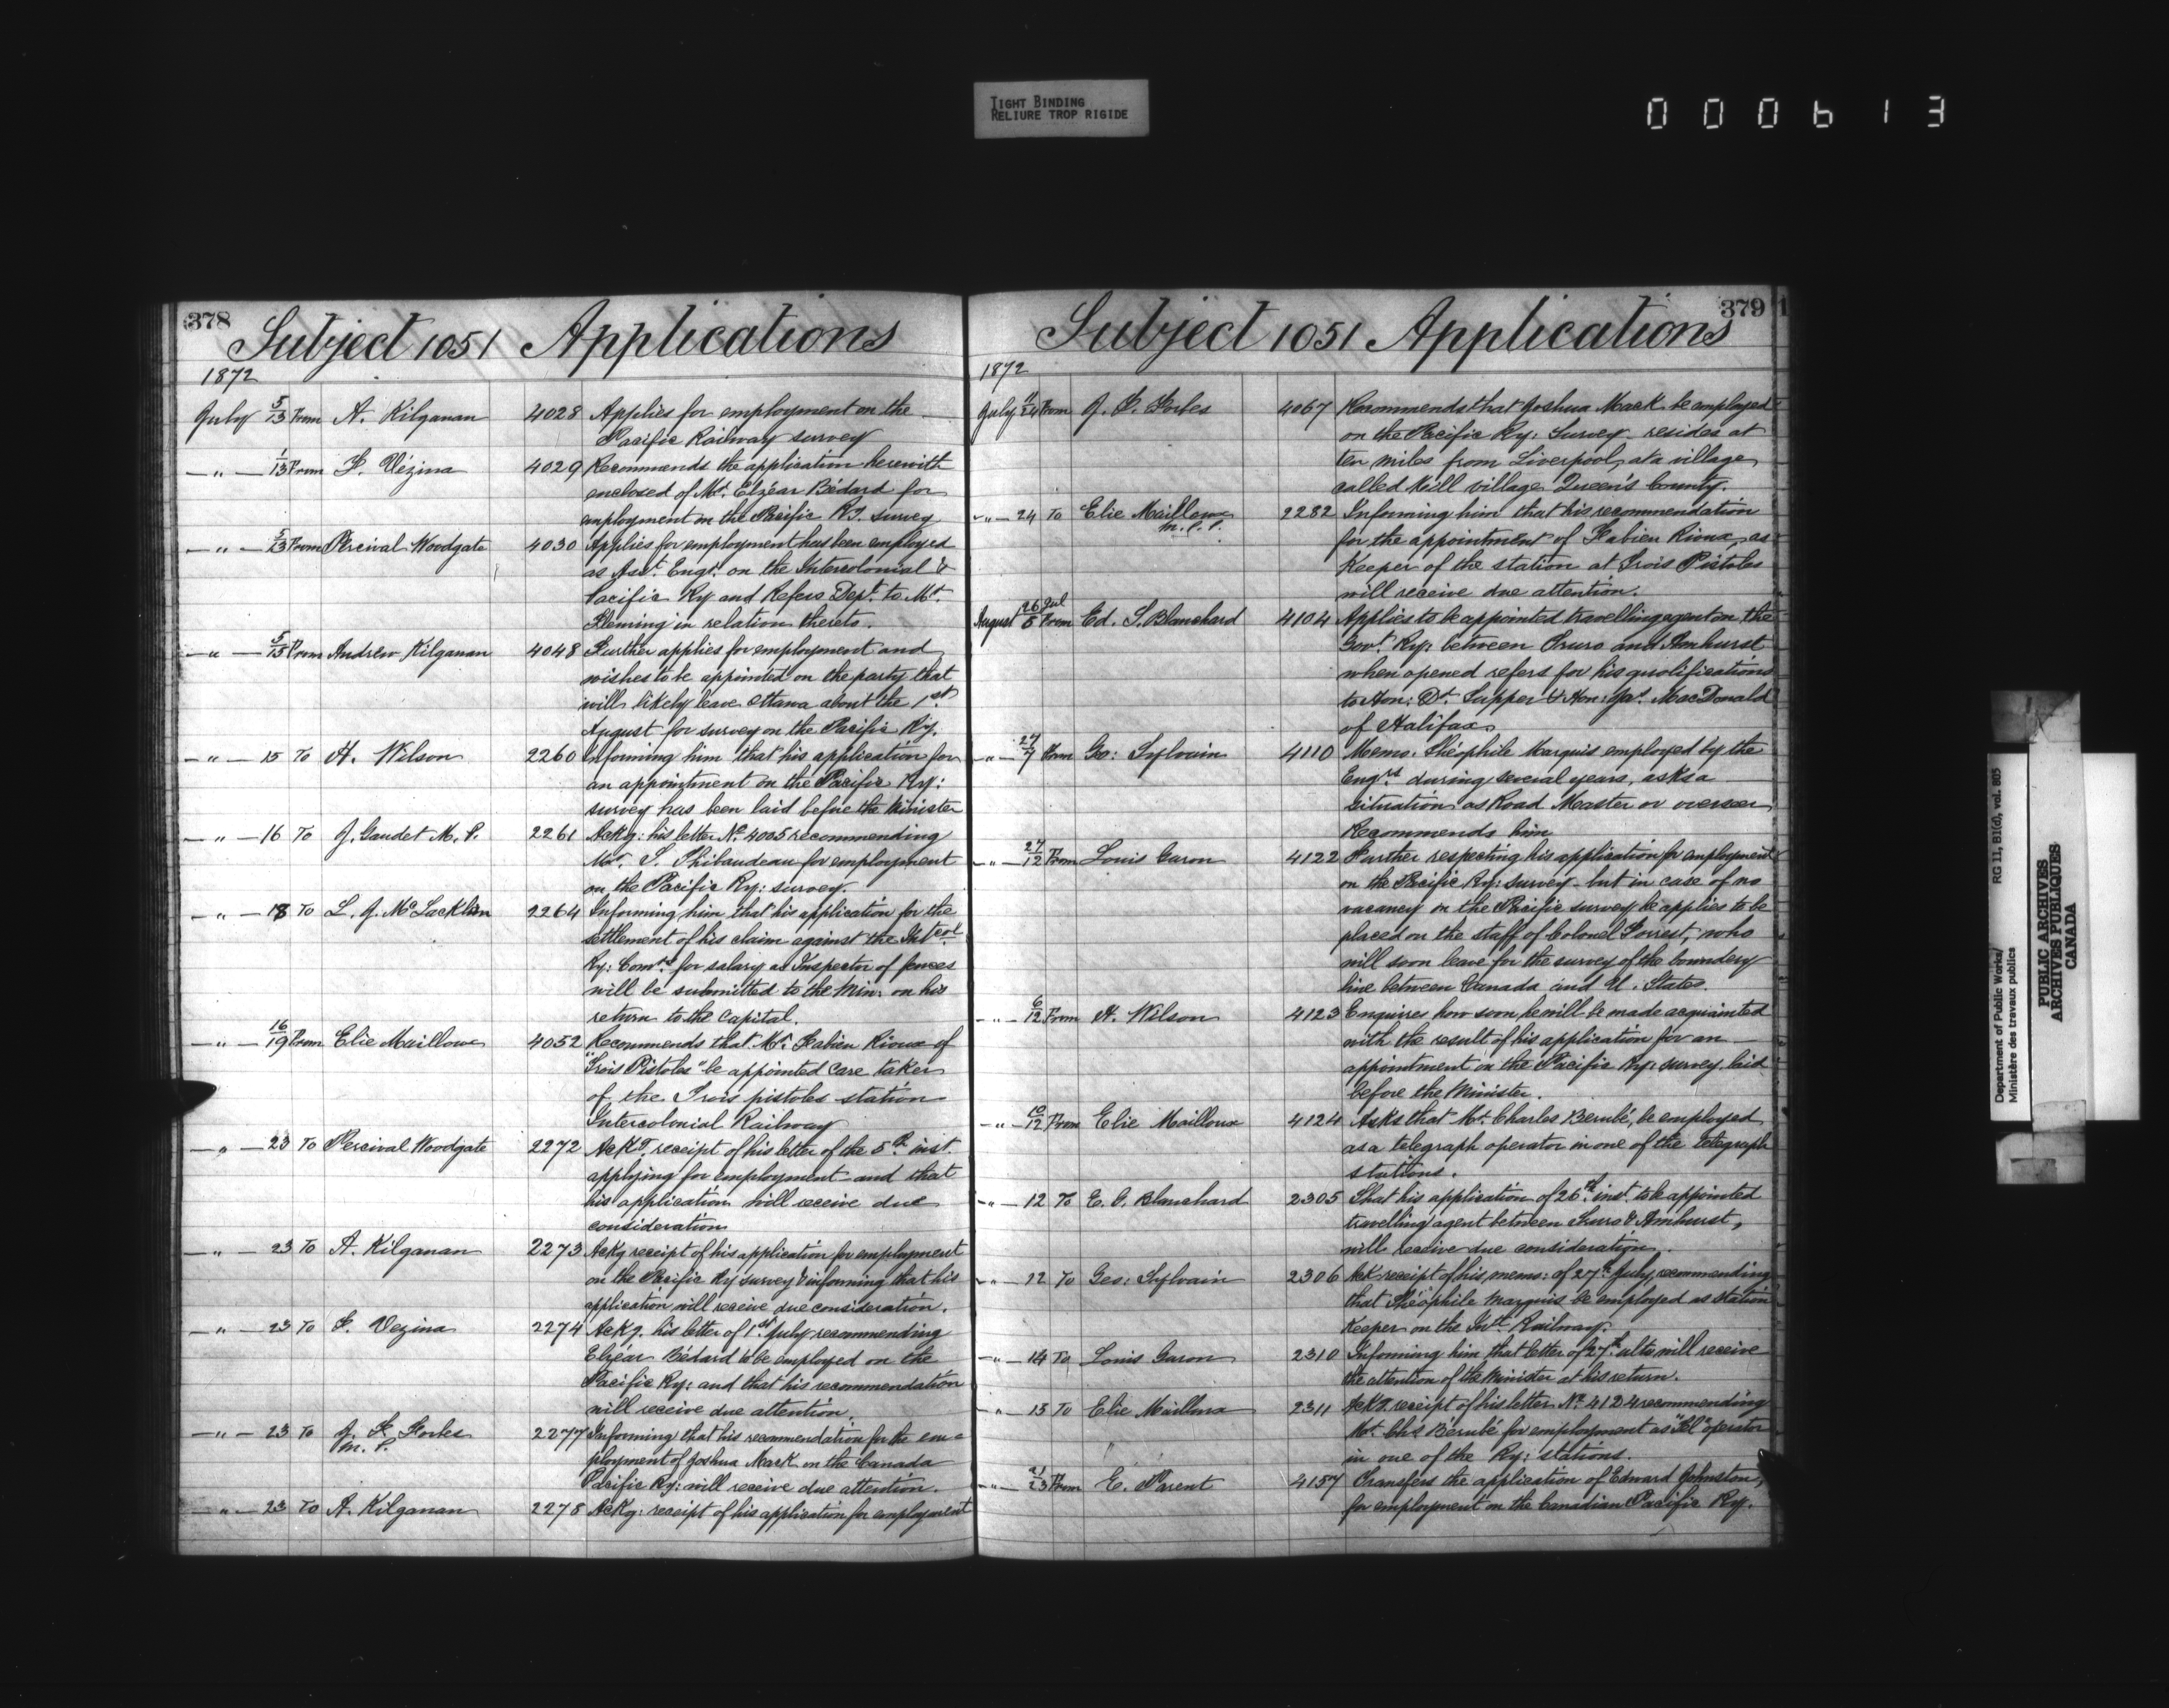 TIGHT BINDING
RELIURE TROP RIGIDE
000613
378
Subject 1051 Applications
1872
July 5/13 From A. Kilganan 4028 Applies for employment on the
Pacific Railway survey
—"— 1/13 From F. Vézina 4029 Recommends the application herewith
enclosed of Mr. Elzéar Bédard for
employment on the Pacific Ry. survey
—"— 5/13 From Percival Woodgate 4030 Applies for employment has been employed
as Asst. Engr. on the Intercolonial &
Pacific Ry and Refers Dept. to Mr.
Fleming in relation thereto.
—"— 5/15 From Andrew Kilganan 4048 Further applies for employment and
wishes to be appointed on the party that
will likely leave Ottawa about the 1st
August for survey on the Pacific Ry.
—"— 15 To H. Wilson 2260 Informing him that his application for
an appointment on the Pacific Ry:
survey has been laid before the Minister
—"— 16 To J. Gaudet M. P. 2261 Ackg: his letter No. 4005 recommending
Mr. S. Thibaudeau for employment
on the Pacific Ry: survey.
—"— 18 To L. J. McLacklan 2264 Informing him that his application for the
settlement of his claim against the Intcol
Ry: Comrs. for salary as Inspector of fences
will be submitted to the Min: on his
return to the Capital.
—"— 16/19 From Elie Mailloux 4052 Recommends that Mr. Fabien Rioux of
"Trois Pistoles" be appointed Care taker
of the Trois pistoles station
Intercolonial Railway
—"— 23 To Percival Woodgate 2272 Ackg. receipt of his letter of the 5th inst.
applying for employment and that
his application will receive due
consideration
—"— 23 To A. Kilganan 2273 Ackg receipt of his application for employment
on the Pacific Ry survey & informing that his
application will receive due consideration.
—"— 23 To F. Vezina 2274 Ackg. his letter of 1st July recommending
Elzéar Bédard to be employed on the
Pacific Ry: and that his recommendation
will receive due attention.
—"— 23 To J. F. Forbes 2277 Informing that his recommendation for the em-
M. P. ployment of Joshua Mack on the Canada
Pacific Ry: will receive due attention.
—"— 23 To A. Kilganan 2278 Ackg: receipt of his application for employment
379
Subject 1051 Applications
1872
July 11/24 From J. F. Forbes 4067 Recommends that Joshua Mack be employed
on the Pacific Ry: Survey - resides at
ten miles from Liverpool, at a village
called Mill village Queen's County.
—"— 24 To Elie Mailloux 2282 Informing him that his recommendation
M.P.P. for the appointment of Fabien Rioux, as
Keeper of the station at Trois Pistoles
will receive due attention.
August 26 Jul/5 From Ed. S. Blanchard 4104 Applies to be appointed travelling agent on the
Govt. Ry: between Truro and Amhurst
when opened refers for his qualifications
to Hon: Dr. Tupper & Hon: Jas. MacDonald
of Halifax
—"— 27/7 From Geo: Sylvain 4110 Memo. Théophile Marquis employed by the
Engrs. during several years, asks a
situation as Road Master or overseer
Recommends him
—"— 27/12 From Louis Garon 4122 Further respecting his application for employment
on the Pacific Ry: survey - but in case of no
vacancy on the Pacific survey he applies to be
placed on the staff of Colonel Forrest, who
will soon leave for the survey of the boundery
line between Canada and U. States.
—"— 6/12 From H. Wilson 4123 Enquires how soon he will be made acquainted
with the result of his application for an
appointment on the Pacific Ry: survey laid
before the Minister.
—"— 10/12 From Elie Mailloux 4124 Asks that Mr. Charles Berubé, be employed
as a telegraph operator in one of the telegraph
stations.
—"— 12 To E. S. Blanchard 2305 That his application of 26th inst. to be appointed
travelling agent between Truro & Amhurst,
will receive due consideration.
—"— 12 To Geo: Sylvain 2306 Ack receipt of his memo: of 27th July, recommending
that Théophile Marquis be employed as station
Keeper on the Intl. Railway.
—"— 14 To Louis Garon 2310 Informing him that letter of 27th ulto will receive
the attention of the Minister at his return.
—"— 13 To Elie Mailloux 2311 Ackg. receipt of his letter No. 4124 recommending
Mr. Chs Bérubé for employment as "Tel" operator
in one of the Ry: stations.
—"— 21/23 From E. Parent 4157 Transfers the application of Edward Johnston,
for employment on the Canadian Pacific Ry.
Department of Public Works/
Ministère des travaux publics
RG 11, B1(d), vol. 805
PUBLIC ARCHIVES
ARCHIVES PUBLIQUES
CANADA